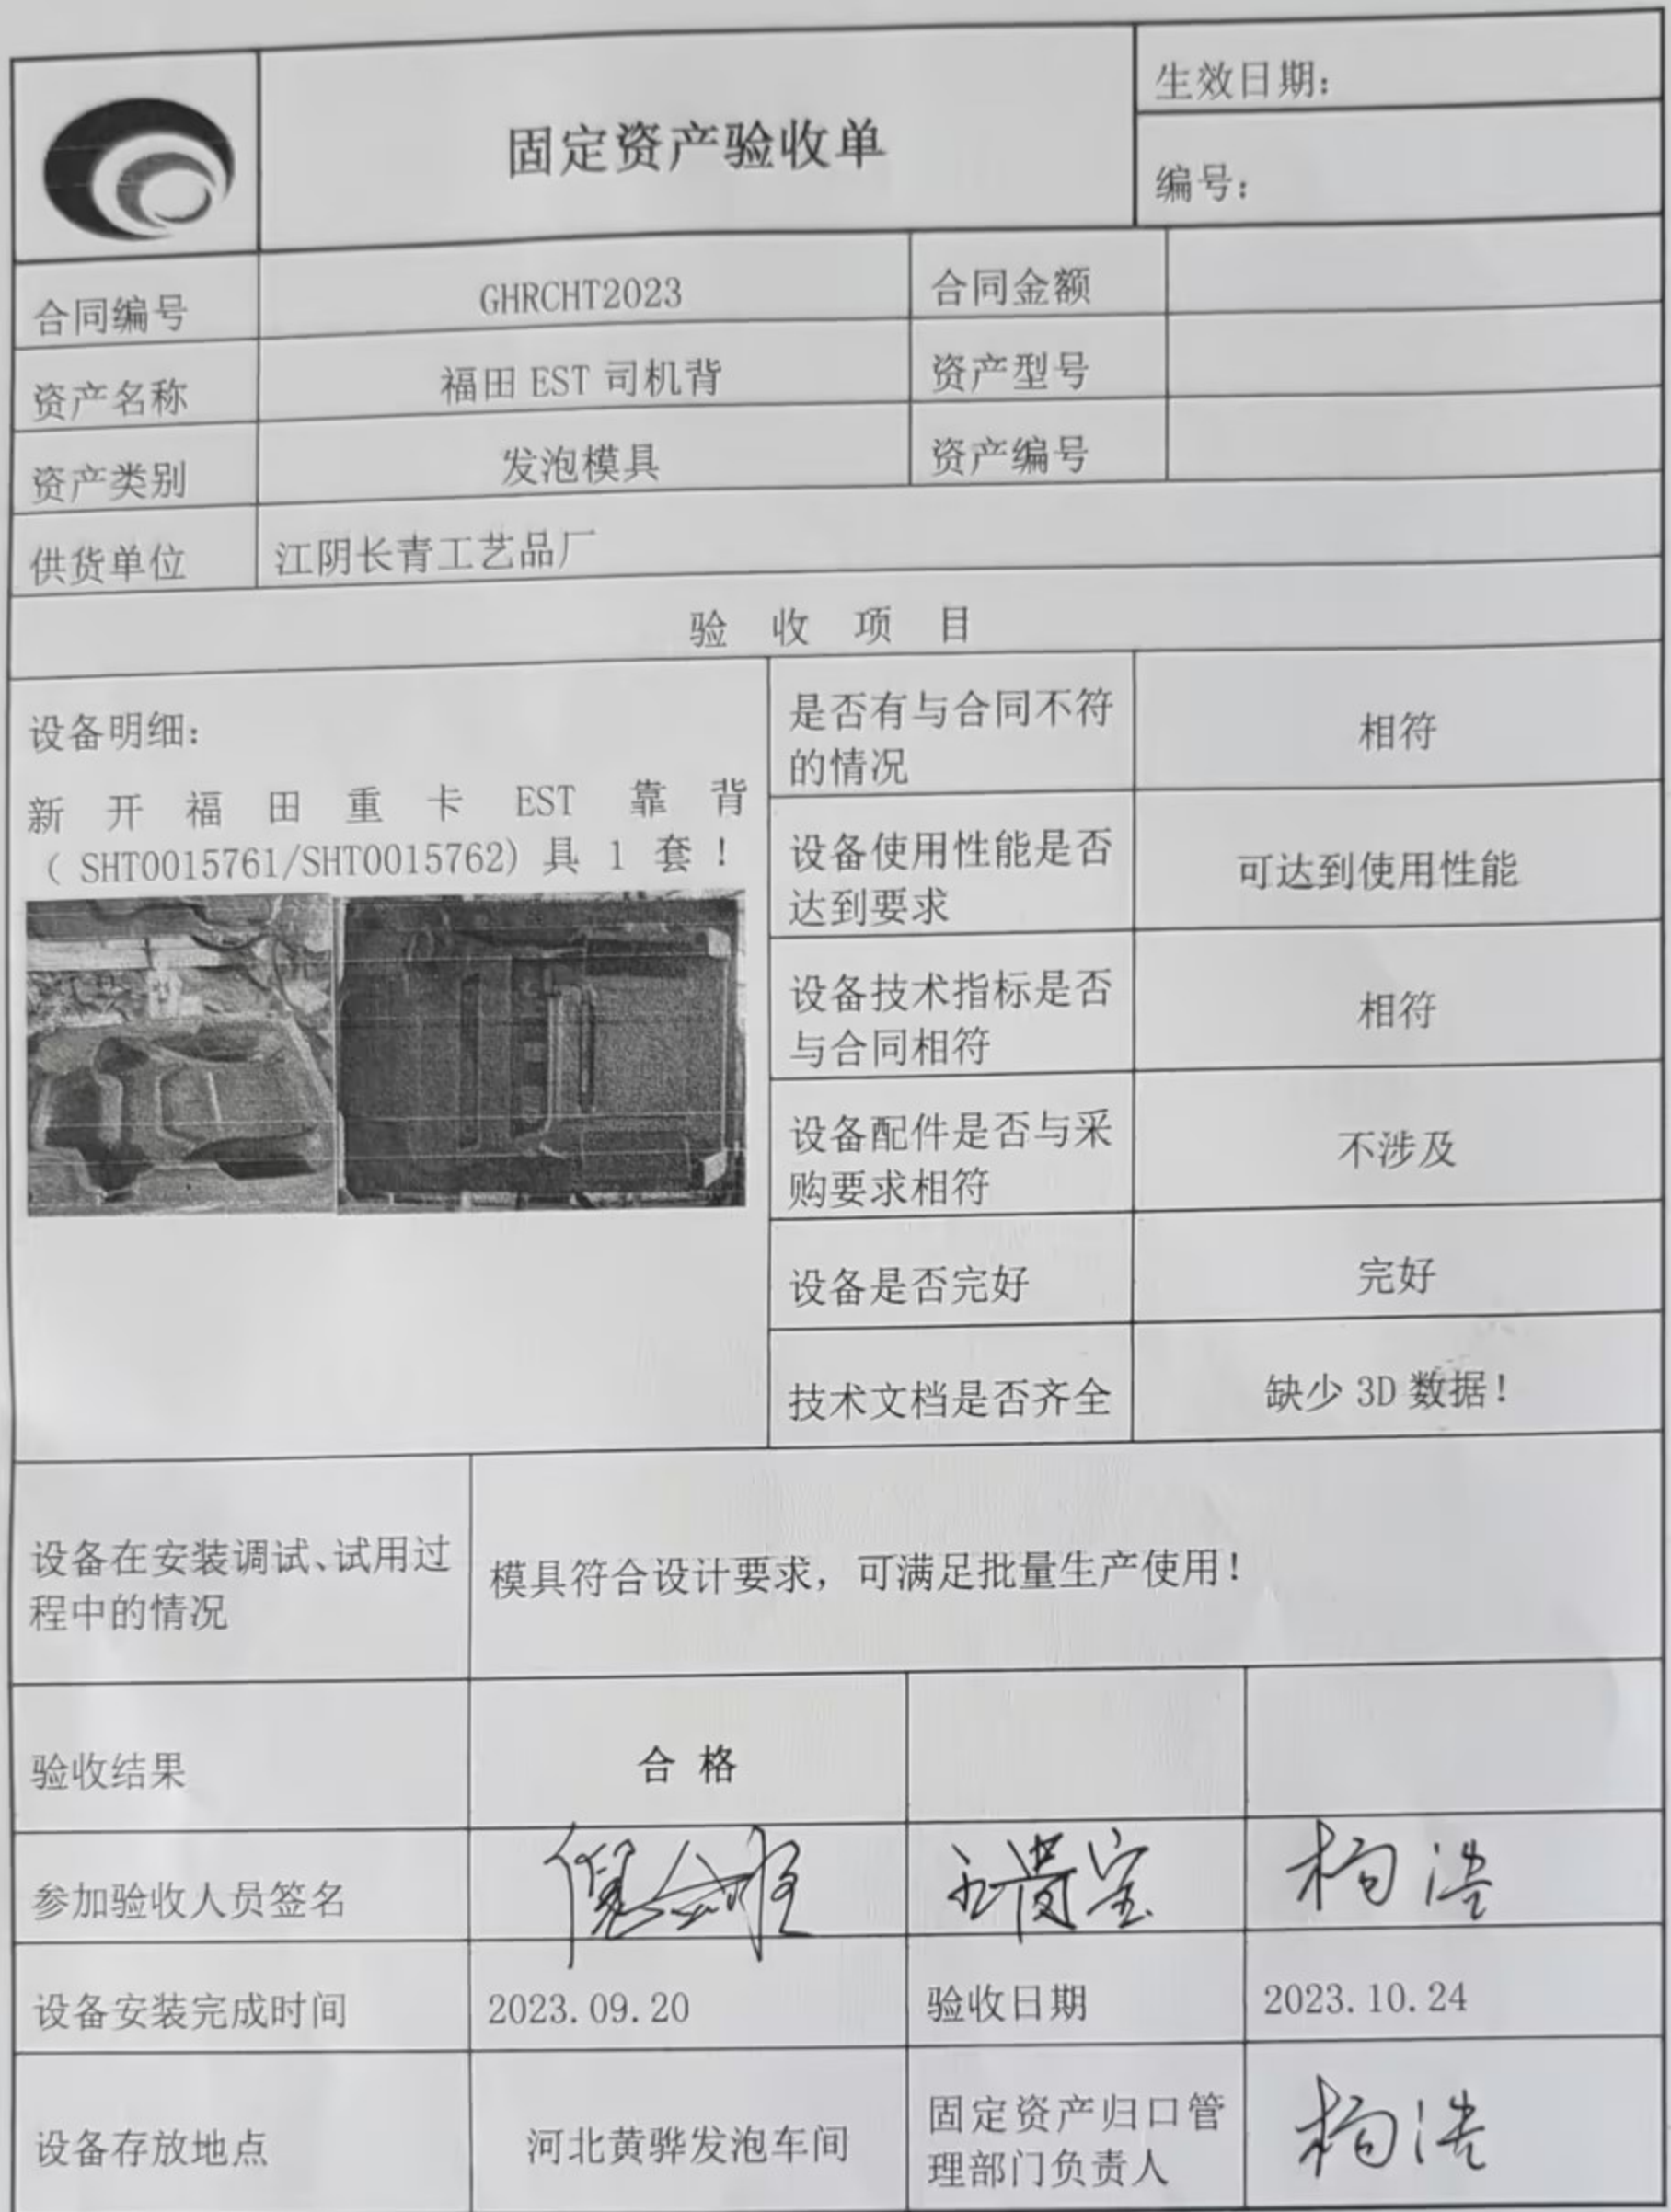 固定资产验收单
生效日期：
编号：
合同编号 GHRCHT2023 合同金额
资产名称 福田 EST 司机背 资产型号
资产类别 发泡模具 资产编号
供货单位 江阴长青工艺品厂
验 收 项 目
设备明细：
新 开 福 田 重 卡 EST 靠 背
（ SHT0015761/SHT0015762) 具 1 套 ！
是否有与合同不符
的情况
相符
设备使用性能是否
达到要求
可达到使用性能
设备技术指标是否
与合同相符
相符
设备配件是否与采
购要求相符
不涉及
设备是否完好 完好
技术文档是否齐全 缺少 3D 数据！
设备在安装调试、试用过
程中的情况
模具符合设计要求，可满足批量生产使用！
验收结果 合 格
参加验收人员签名 杨浩
设备安装完成时间 2023.09.20 验收日期 2023.10.24
设备存放地点 河北黄骅发泡车间
固定资产归口管
理部门负责人
杨浩